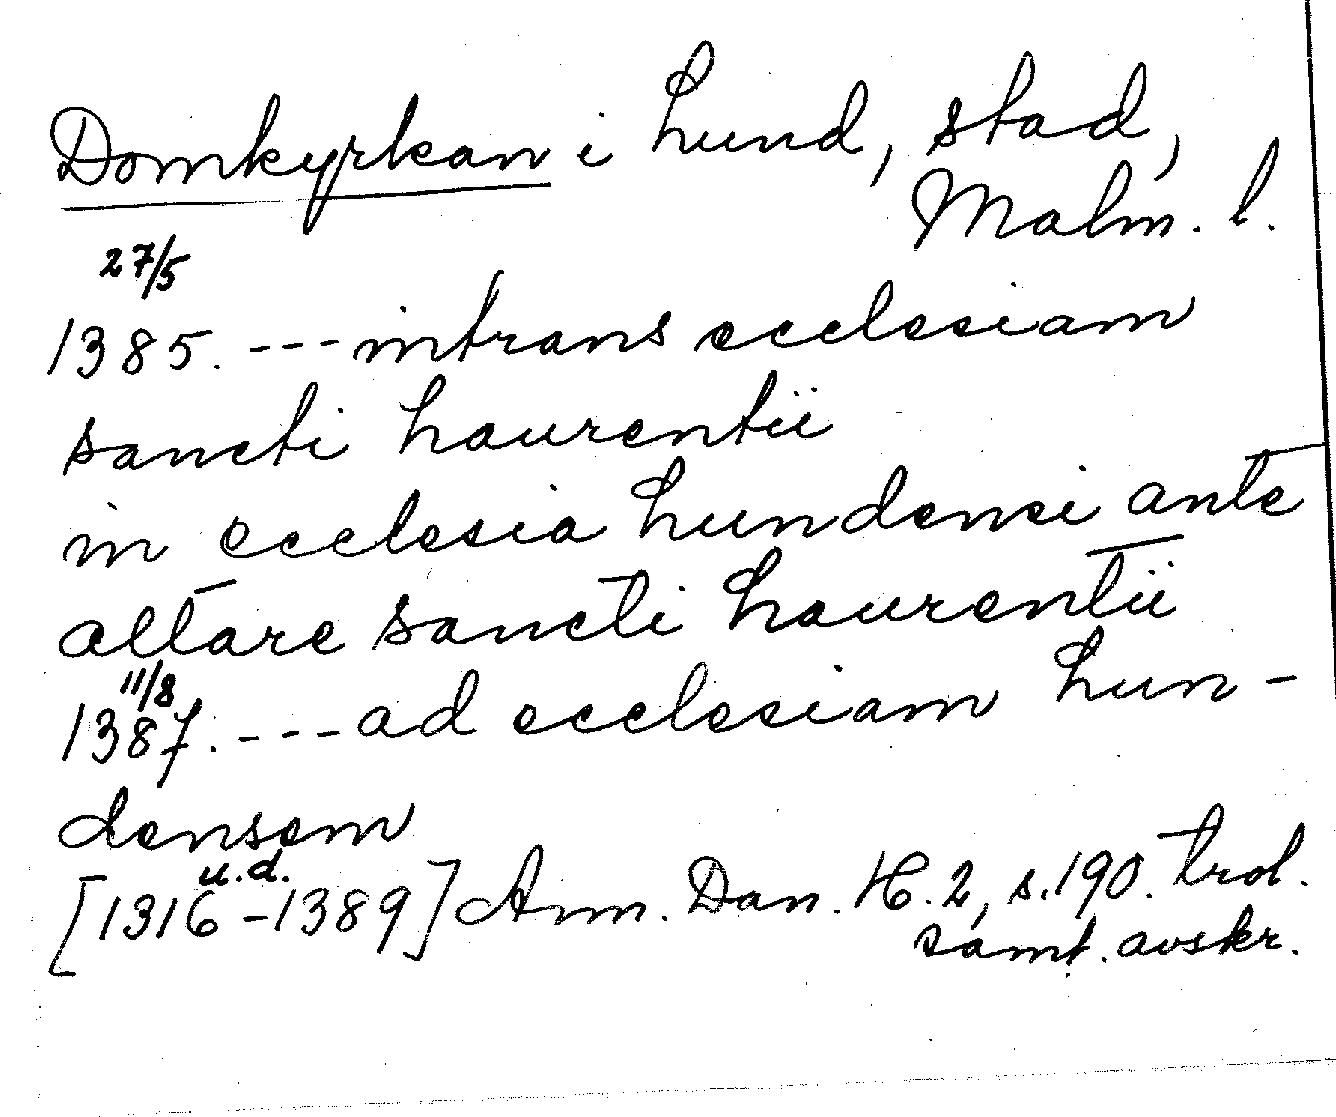 Domkyrkan i Lund, stad,
Malm. l.
27/5
1385. --- intrans ecclesiam
sancti Laurentii
in ecclesia Lundensi ante
altare sancti Laurentii
11/8
1387. --- ad ecclesiam Lun-
densem
u.d.
[1316-1389] Ann. Dan. H. 2, s. 190. Trol.
samt. avskr.